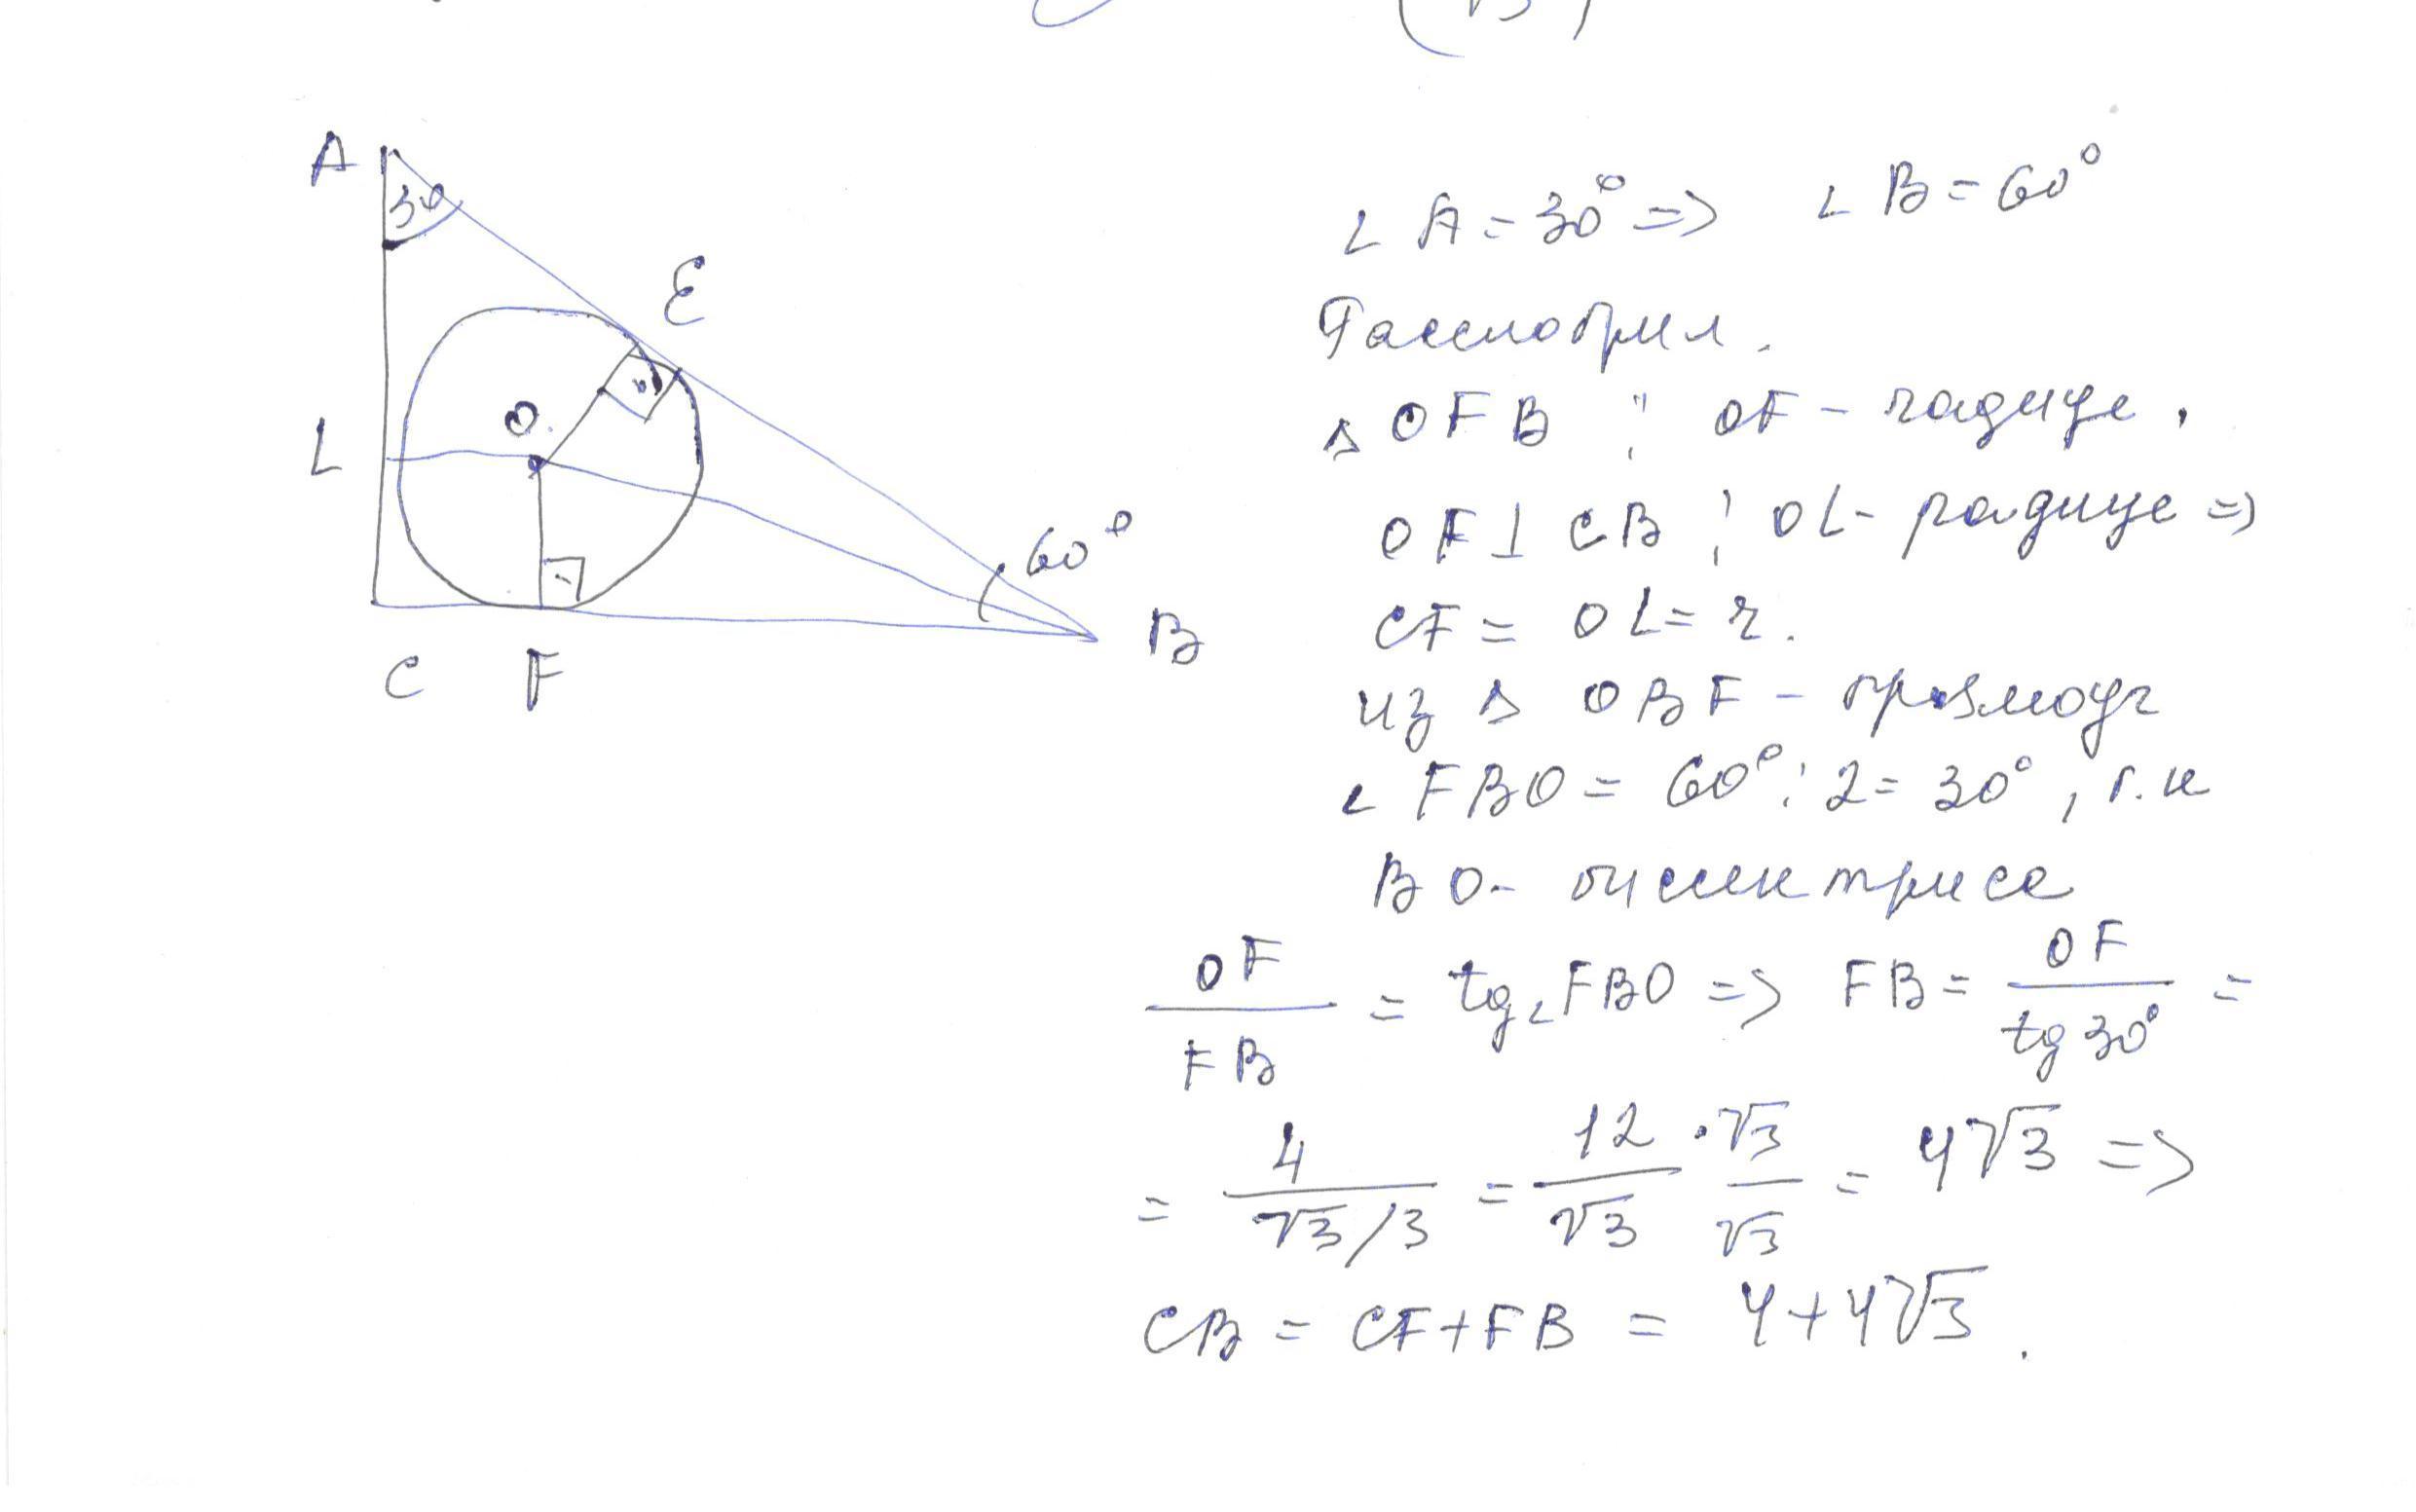 √3)
A
30
E
O
L
60°
B
C F
∠ A = 30° => ∠ B = 60°
Рассмотрим.
Δ OFB : OF - радиус,
OF ⊥ CB ; OL - радиус =>
CF = OL = r.
из Δ OBF - прямоуг
∠ FBO = 60° : 2 = 30°, т.к
BO - биссектриса
OF/FB = tg∠FBO => FB = OF/tg30° =
= 4/(√3/3) = 12/√3 · √3/√3 = 4√3 =>
CB = CF + FB = 4 + 4√3.